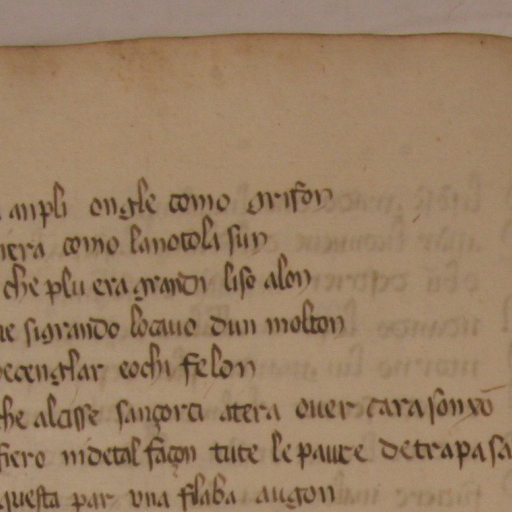 anpli ongle como grifon
como lanotoli sun
che plu era grandi liso alon
sigrando locauo dun molton
cenglar eochi fellon
che alcisse sangorti atera ouer tara
fiero nidetal façon tute le pauce detrapasa
questa par vna flaba augon